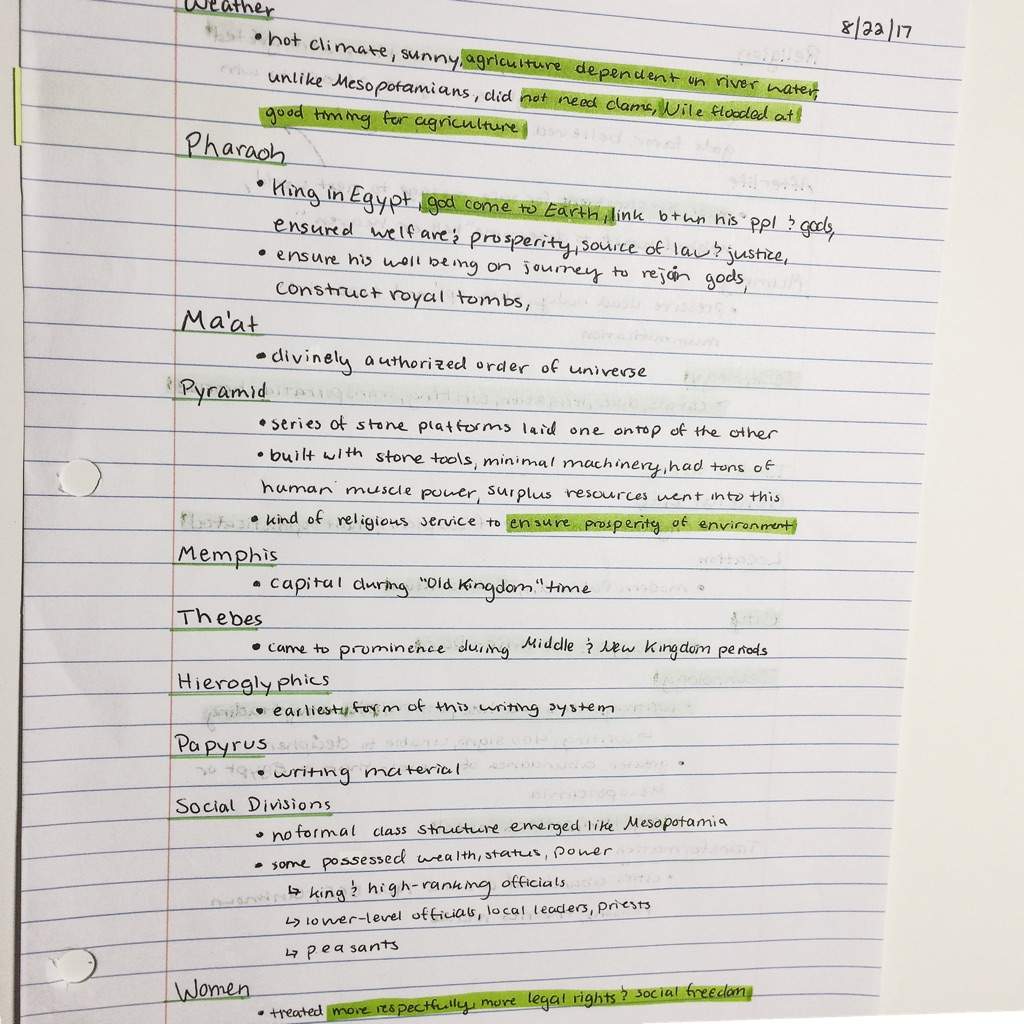 Weather
8/22/17
• hot climate, sunny, agriculture dependent on river water,
unlike Mesopotamians, did not need dams, Nile flooded at
good timing for agriculture
Pharaoh
• King in Egypt, god come to Earth, link btwn his ppl & gods,
ensured welfare & prosperity, source of law & justice,
• ensure his well being on journey to rejoin gods,
construct royal tombs,
Ma'at
• divinely authorized order of universe
Pyramid
• series of stone platforms laid one ontop of the other
• built with stone tools, minimal machinery, had tons of
human muscle power, surplus resources went into this
• kind of religious service to ensure prosperity of environment
Memphis
• capital during "Old Kingdom" time
Thebes
• came to prominence during Middle & New Kingdom periods
Hieroglyphics
• earliest form of this writing system
Papyrus
• writing material
Social Divisions
• no formal class structure emerged like Mesopotamia
• some possessed wealth, status, power
↳ king & high-ranking officials
↳ lower-level officials, local leaders, priests
↳ peasants
Women
• treated more respectfully, more legal rights & social freedom